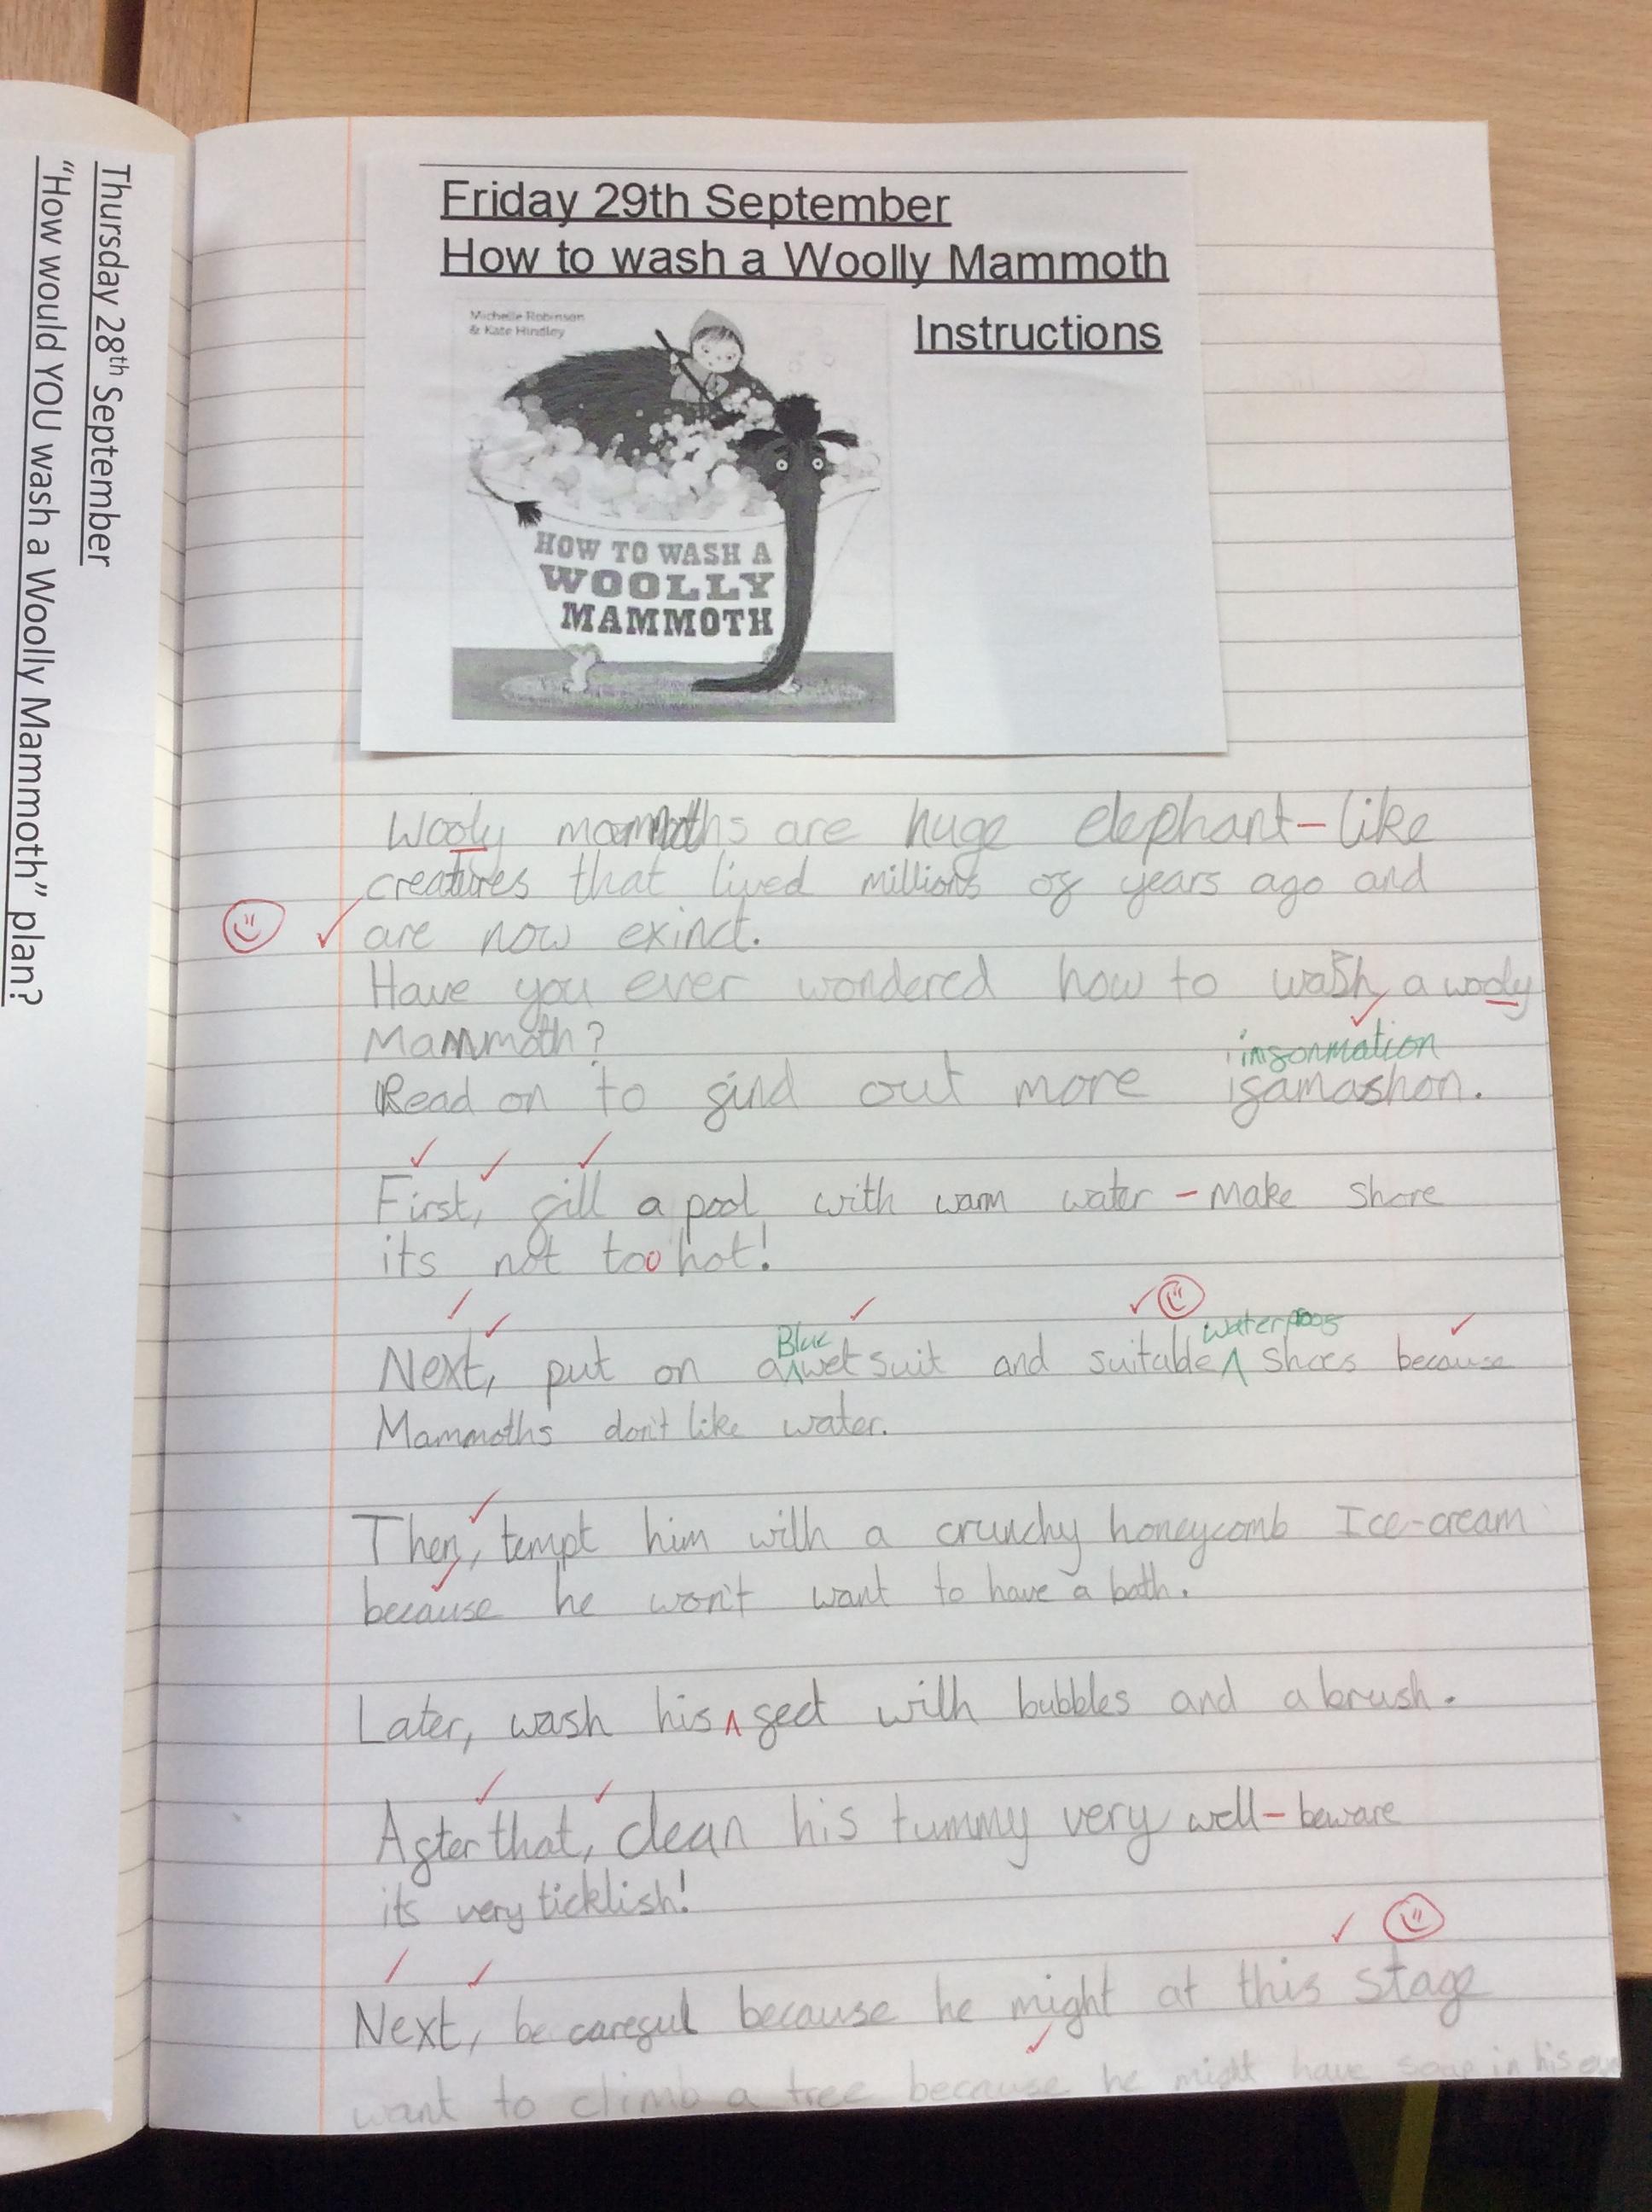 Thursday 28th September
"How would YOU wash a Woolly Mammoth" plan?
Friday 29th September
How to wash a Woolly Mammoth
Instructions
Michelle Robinson
& Kate Hindley
HOW TO WASH A
WOOLLY
MAMMOTH
Wooly mammoths are huge elephant-like
creatures that lived millions of years ago and
are now exinct.
Have you ever wondered how to wash a wooly
Mammoth?
information
Read on to find out more ifamashon.
First, fill a pool with warm water - make shore
its not too hot!
Blue waterproof
Next, put on a wetsuit and suitable shoes because
Mammoths don't like water.
Then, tempt him with a crunchy honeycomb Ice-cream
because he won't want to have a bath.
Later, wash his feet with bubbles and a brush.
After that, clean his tummy very well - beware
its very ticklish!
Next, be careful because he might at this stage
want to climb a tree because he might have soap in his